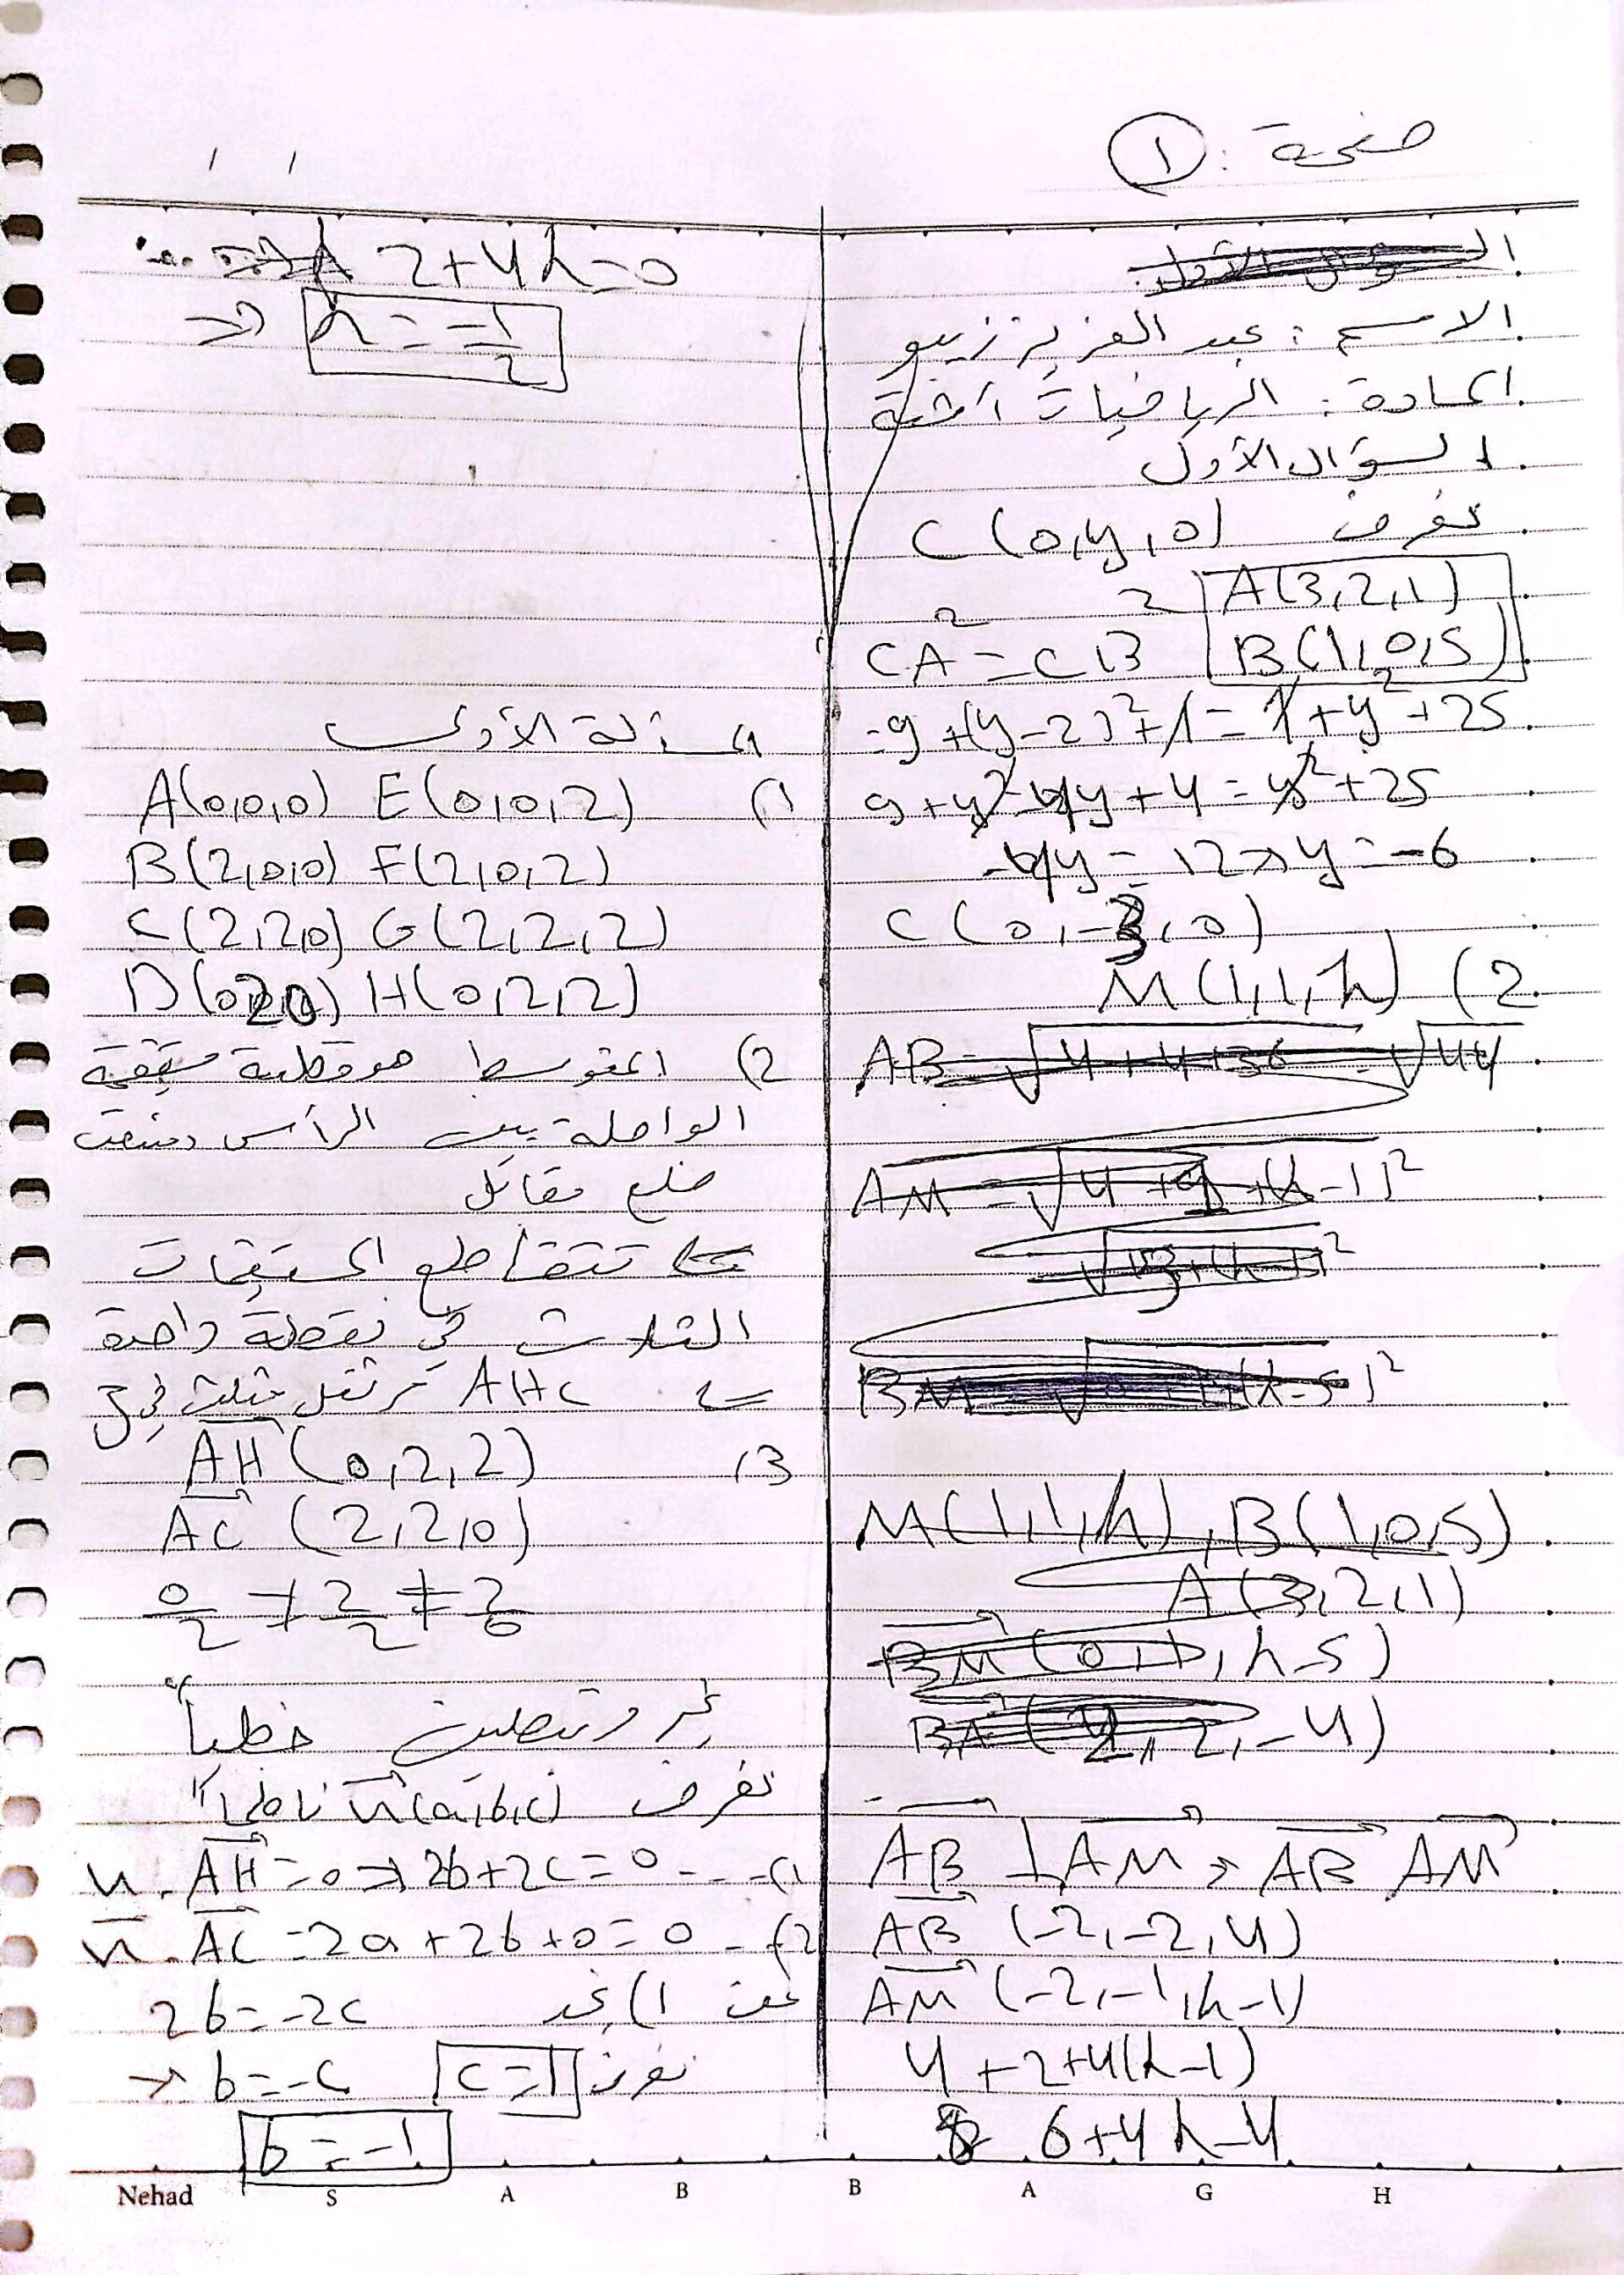 صفحة : ①
الاسم : عبد العزيز زينو
المادة : الرياضيات أتمتة
السؤال الأول
نفرض C(0,y,0)
A(3,2,1)
CA² = CB² B(1,0,5)
9+(y-2)²+1=1+y²+25
9+y²-4y+4=y²+25
-4y=12→y=-6
C(0,-3,0)
M(1,1,h) (2
AB=√4+4+36=√44
AM=√4+ +(h-1)²
BM (h-5)²
M(1,1,h), B(1,0,5)
A(3,2,1)
BM(0,1,h-5)
BA(2,2,-4)
AB ⊥ AM → AB AM
AB (-2,-2,4)
AM (-2,-1,h-1)
4+2+4(h-1)
6+4h-4
⇒ 2+4h=0
⇒ h=-1/2
المسألة الأولى
A(0,0,0) E(0,0,2) (1
B(2,0,0) F(2,0,2)
C(2,2,0) G(2,2,2)
D(0,2,0) H(0,2,2)
2) المتوسط هو قطعة مستقيمة
الواصلة بين الرأس ومنتصف
ضلع مقابل
⇐ تتقاطع المستقيمات
الثلاث في نقطة واحدة
⇐ AHC مثلث
AH (0,2,2) (3
AC (2,2,0)
0/2 ≠ 2/2 ≠ 2/0
غير مرتبطين خطياً
نفرض n(a,b,c) ناظماً
n.AH=0⇒2b+2c=0---(1
n.AC=2a+2b+0=0--(2
من 1) نجد 2b=-2c
→ b=-c نفرض c=1
b=-1
Nehad S A B B A G H